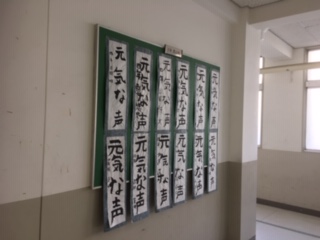 元気な声
元気な声
元気な声
元気な声
元気な声
元気な声
元気な声
元気な声
元気な声
元気な声
元気な声
元気な声